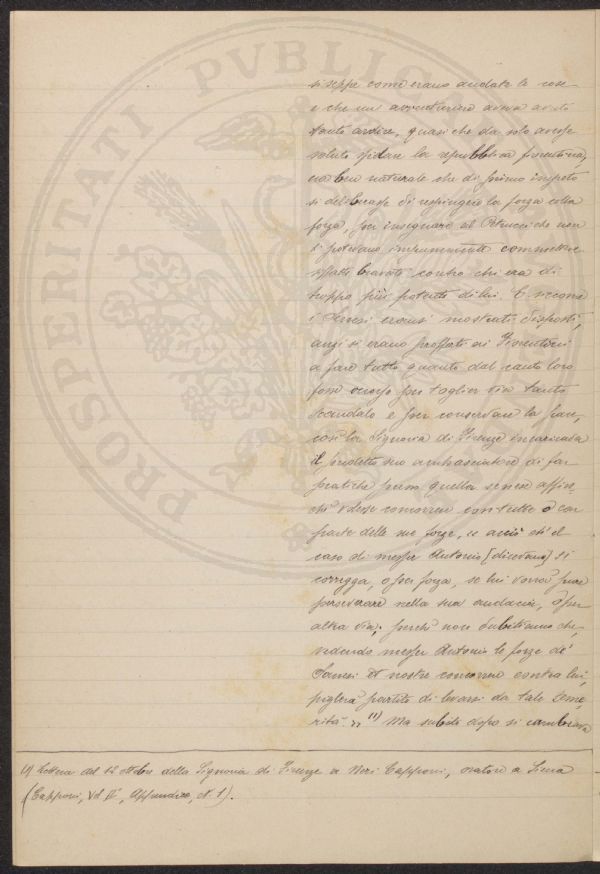 si seppe come erano andate le cose
e che un avventuriero aveva avuto
tanto ardire, quasi che da solo avesse
voluto sfidare la repubblica fiorentina,
era ben naturale che di primo impeto
si deliberasse di respingere la forza colla
forza, per insegnare al Petrucci che non
si potevano impunemente commettere
siffatte bravate contro chi era di
troppo più potente di lui. E siccome
i Senesi eransi mostrati disposti,
anzi si erano profferti ai Fiorentini
a fare tutto quanto dal canto loro
fosse occorso per toglier via tanto
scandalo e per conservare la pace,
così la Signoria di Firenze incaricava
il predetto suo ambasciatore di far
pratiche presso quella senese affin-
chè volesse concorrere con tutte o con
parte delle sue forze, "e acciò ch'el
caso di messer Antonio [dicevano] si
corregga, o per forza, se lui vorrà pure
perseverare nella sua audacia, o per
altra via; perchè non dubitiamo che,
vedendo messer Antonio le forze de'
Sanesi et nostre concorrere contra lui,
piglierà partito di levarsi da tale teme-
rità." (1) Ma subito dopo si cambiava
(1) Lettera del 12 ottobre della Signoria di Firenze a Neri Capponi, oratore a Siena
(Capponi, Vol. II°, Appendice, N. 1).
PROSPERITATI PVBLICAE